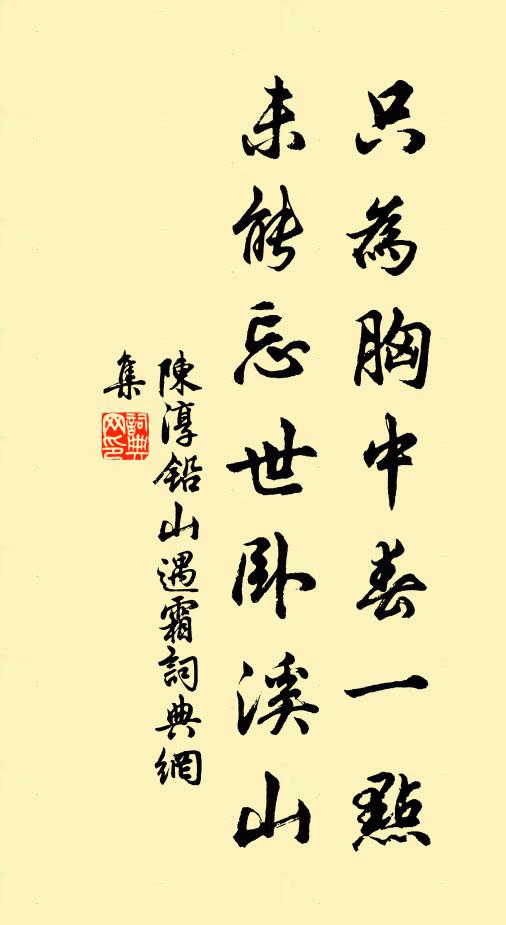 只為胸中春一點
未能忘世卧溪山
陳淳鉛山遇霜詞典網
集
詞典
网印